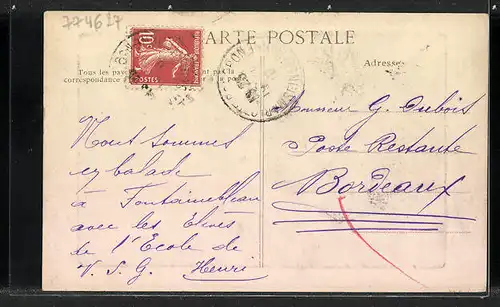 774627
CARTE POSTALE
10c
POSTES
Tous les pays
correspondance à la po
Adresse
Monsieur G. Dubois
Poste Restante
Bordeaux
Nous sommes
en balade
à Fontainebleau
avec les Élèves
de l'École de
V. S. G. Henri